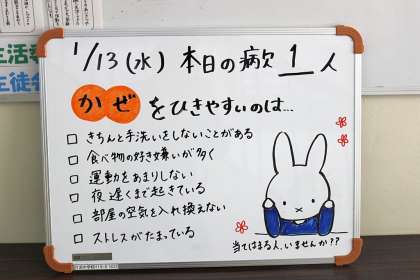 生活
生徒
1/13(水) 本日の病欠 1 人
かぜをひきやすいのは...
□ きちんと手洗いをしないことがある
□ 食べ物の好き嫌いが多く
□ 運動をあまりしない
□ 夜遅くまで起きている
□ 部屋の空気を入れ換えない
□ ストレスがたまっている
当てはまる人、いませんか??